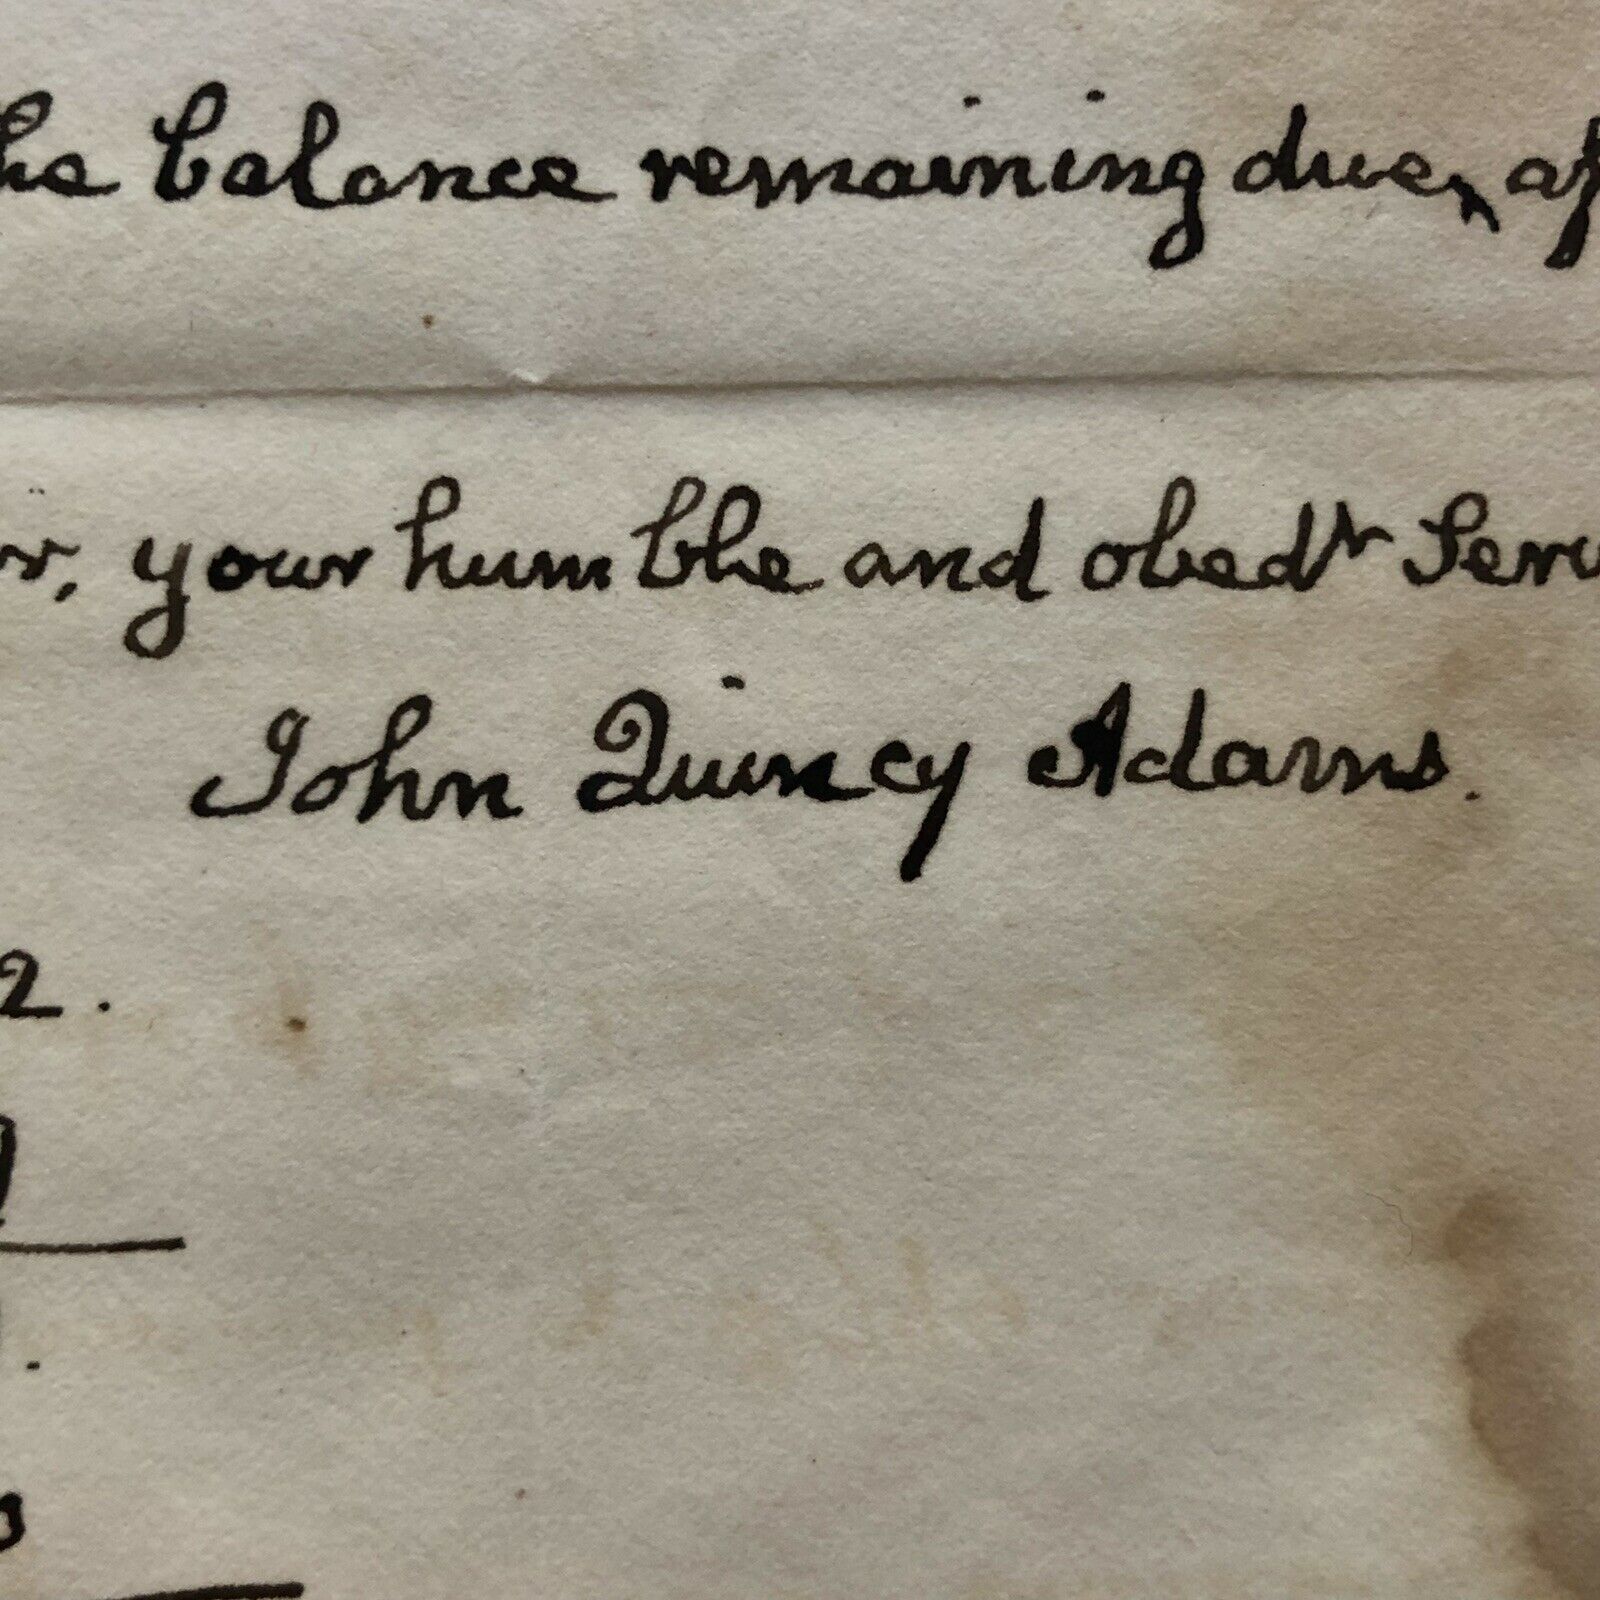 he balance remaining due, af
r, your humble and obedt. Serv
John Quincy Adams.
2.